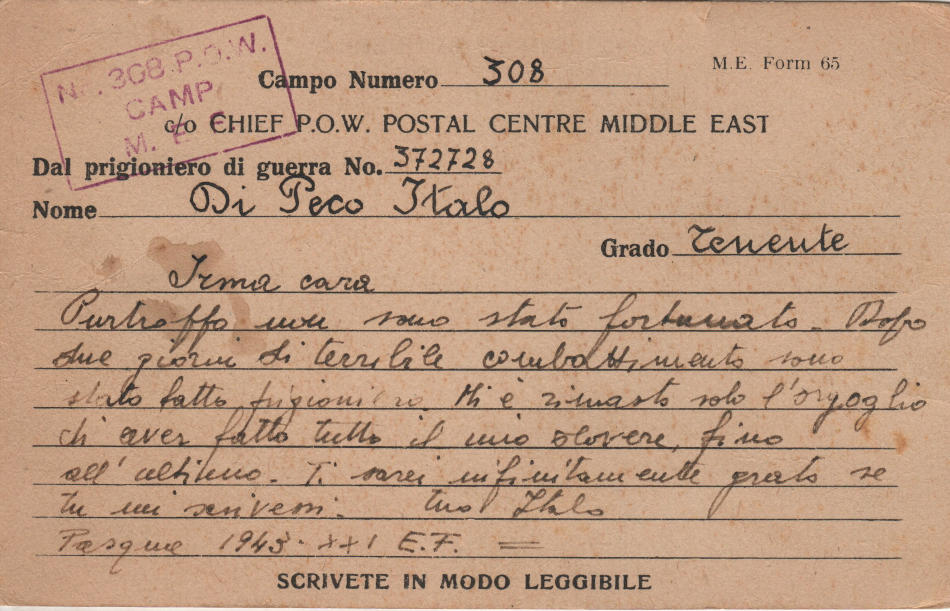 No. 308 P.O.W.
CAMP
M. E. F.
M.E. Form 65
Campo Numero 308
c/o CHIEF P.O.W. POSTAL CENTRE MIDDLE EAST
Dal prigioniero di guerra No. 372728
Nome Di Peco Italo
Grado Tenente
Irma cara
Purtroppo non sono stato fortunato. Dopo
due giorni di terribile combattimento sono
stato fatto prigioniero. Mi è rimasto solo l'orgoglio
di aver fatto tutto il mio dovere, fino
all'ultimo. Ti sarei infinitamente grato se
tu mi scrivessi. tuo Italo
Pasqua 1943. XXI E.F. =
SCRIVETE IN MODO LEGGIBILE